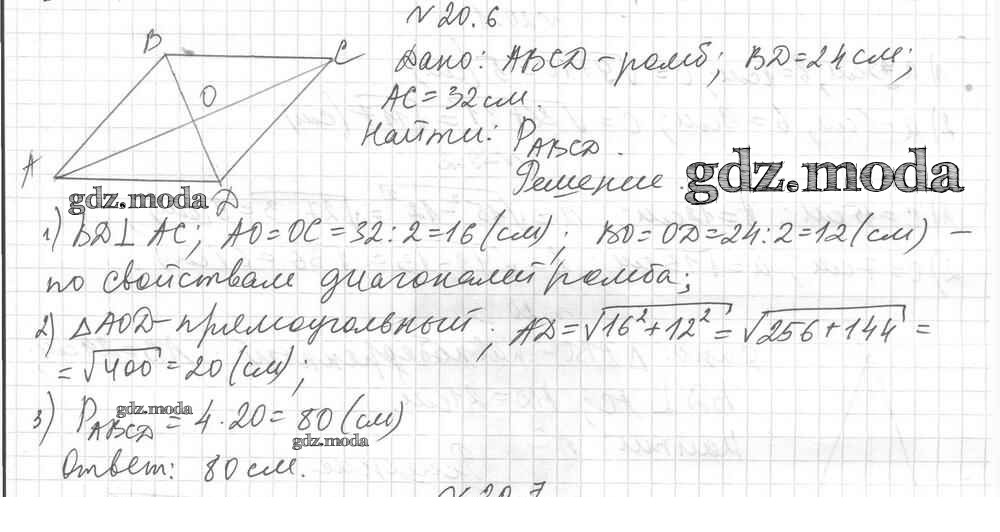 №20.6
B C
Дано: ABCD – ромб; BD = 24 см;
O
AC = 32 см.
Найти: P_ABCD.
A D
Решение.
gdz.moda
gdz.moda
1) BD ⊥ AC; AO = OC = 32 : 2 = 16 (см); BO = OD = 24 : 2 = 12 (см) –
по свойствам диагоналей ромба;
2) △AOD – прямоугольный; AD = √16² + 12² = √256 + 144 =
= √400 = 20 (см);
gdz.moda
3) P_ABCD = 4 · 20 = 80 (см)
gdz.moda
Ответ: 80 см.
№20.7